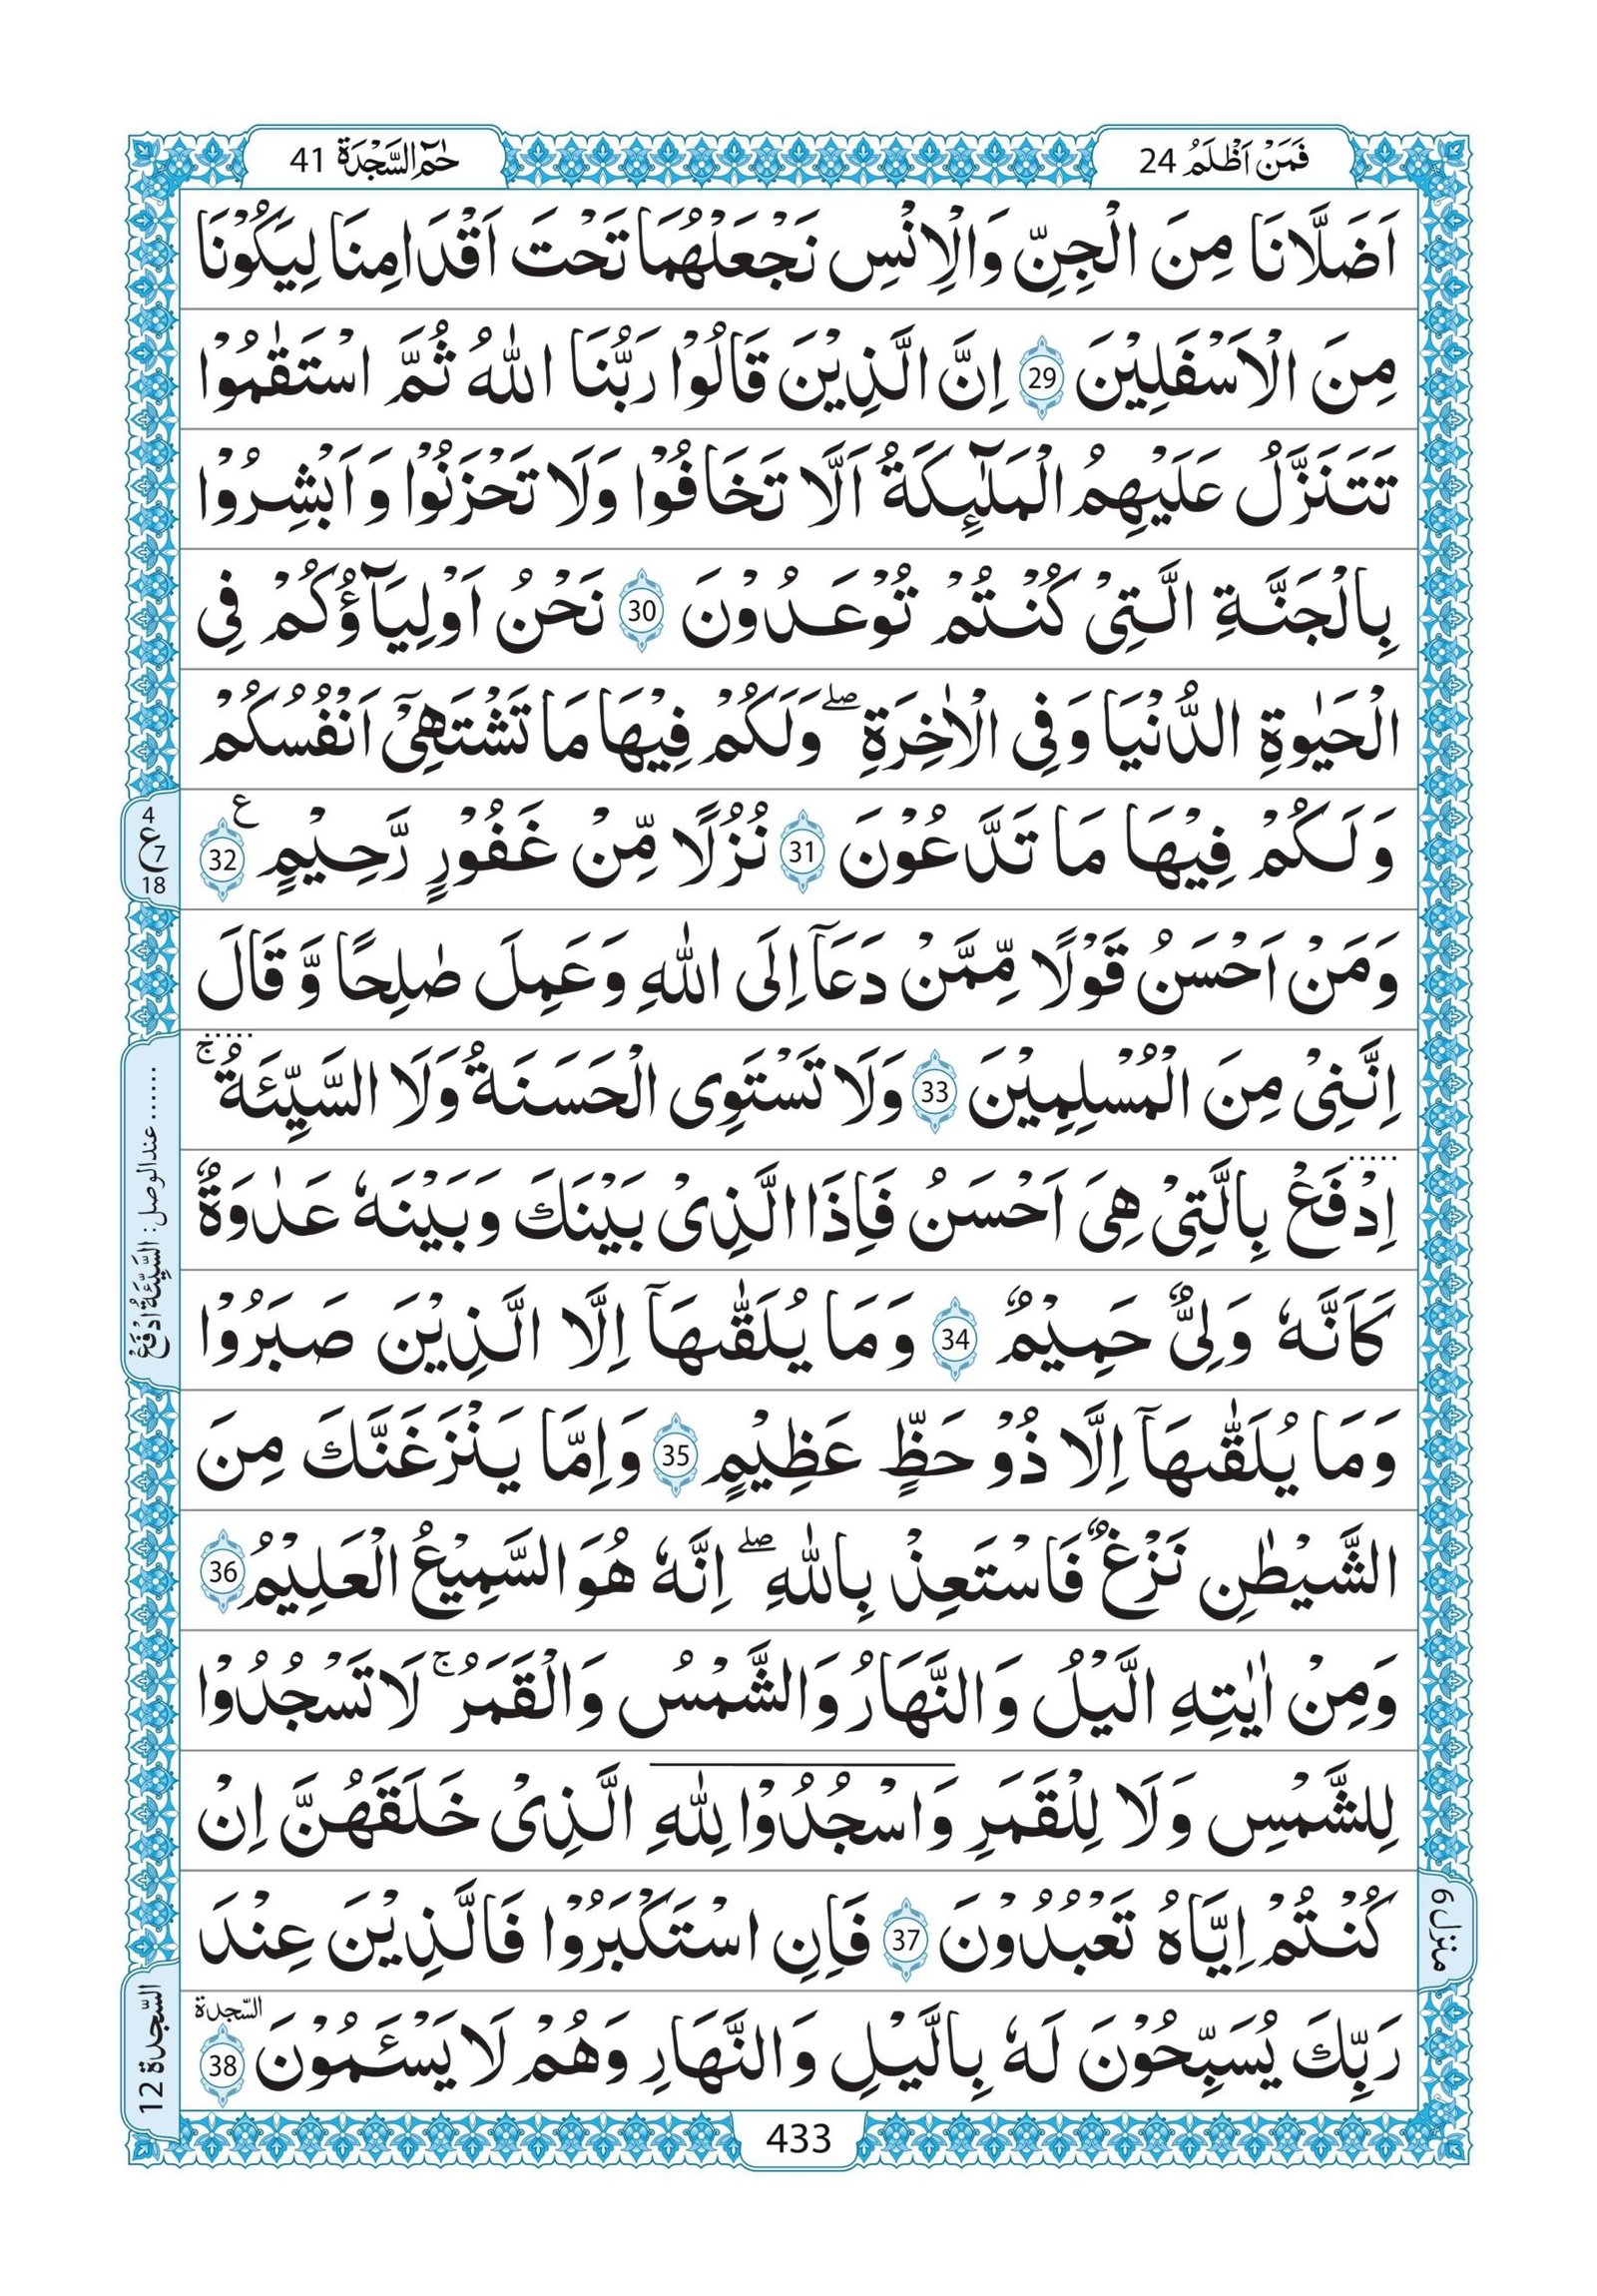 فَمَنْ اَظْلَمُ 24
حٰمٓ السَّجْدَة 41
اَضَلَّانَا مِنَ الْجِنِّ وَالْاِنْسِ نَجْعَلْهُمَا تَحْتَ اَقْدَامِنَا لِيَكُوْنَا
مِنَ الْاَسْفَلِيْنَ 29 اِنَّ الَّذِيْنَ قَالُوْا رَبُّنَا اللّٰهُ ثُمَّ اسْتَقٰمُوْا
تَتَنَزَّلُ عَلَيْهِمُ الْمَلٰٓئِكَةُ اَلَّا تَخَافُوْا وَلَا تَحْزَنُوْا وَاَبْشِرُوْا
بِالْجَنَّةِ الَّتِىْ كُنْتُمْ تُوْعَدُوْنَ 30 نَحْنُ اَوْلِيَآؤُكُمْ فِى
الْحَيٰوةِ الدُّنْيَا وَفِى الْاٰخِرَةِ ۖ وَلَكُمْ فِيْهَا مَا تَشْتَهِىْٓ اَنْفُسُكُمْ
وَلَكُمْ فِيْهَا مَا تَدَّعُوْنَ 31 نُزُلًا مِّنْ غَفُوْرٍ رَّحِيْمٍ ع 32
4
ع 7
18
وَمَنْ اَحْسَنُ قَوْلًا مِّمَّنْ دَعَآ اِلَى اللّٰهِ وَعَمِلَ صٰلِحًا وَّقَالَ
اِنَّنِىْ مِنَ الْمُسْلِمِيْنَ 33 وَلَا تَسْتَوِى الْحَسَنَةُ وَلَا السَّيِّئَةُ ۚ
اِدْفَعْ بِالَّتِىْ هِىَ اَحْسَنُ فَاِذَا الَّذِىْ بَيْنَكَ وَبَيْنَهٗ عَدٰوَةٌ
...... عندالوصل: السَّيِّئَةُ ادْفَعْ
كَاَنَّهٗ وَلِىٌّ حَمِيْمٌ 34 وَمَا يُلَقّٰىهَآ اِلَّا الَّذِيْنَ صَبَرُوْا
وَمَا يُلَقّٰىهَآ اِلَّا ذُوْ حَظٍّ عَظِيْمٍ 35 وَاِمَّا يَنْزَغَنَّكَ مِنَ
الشَّيْطٰنِ نَزْغٌ فَاسْتَعِذْ بِاللّٰهِ ۖ اِنَّهٗ هُوَ السَّمِيْعُ الْعَلِيْمُ 36
وَمِنْ اٰيٰتِهِ الَّيْلُ وَالنَّهَارُ وَالشَّمْسُ وَالْقَمَرُ ۚ لَا تَسْجُدُوْا
لِلشَّمْسِ وَلَا لِلْقَمَرِ وَاسْجُدُوْا لِلّٰهِ الَّذِىْ خَلَقَهُنَّ اِنْ
كُنْتُمْ اِيَّاهُ تَعْبُدُوْنَ 37 فَاِنِ اسْتَكْبَرُوْا فَالَّذِيْنَ عِنْدَ
منزل 6
رَبِّكَ يُسَبِّحُوْنَ لَهٗ بِالَّيْلِ وَالنَّهَارِ وَهُمْ لَا يَسْئَمُوْنَ السّجدة 38
السّجدة 12
433